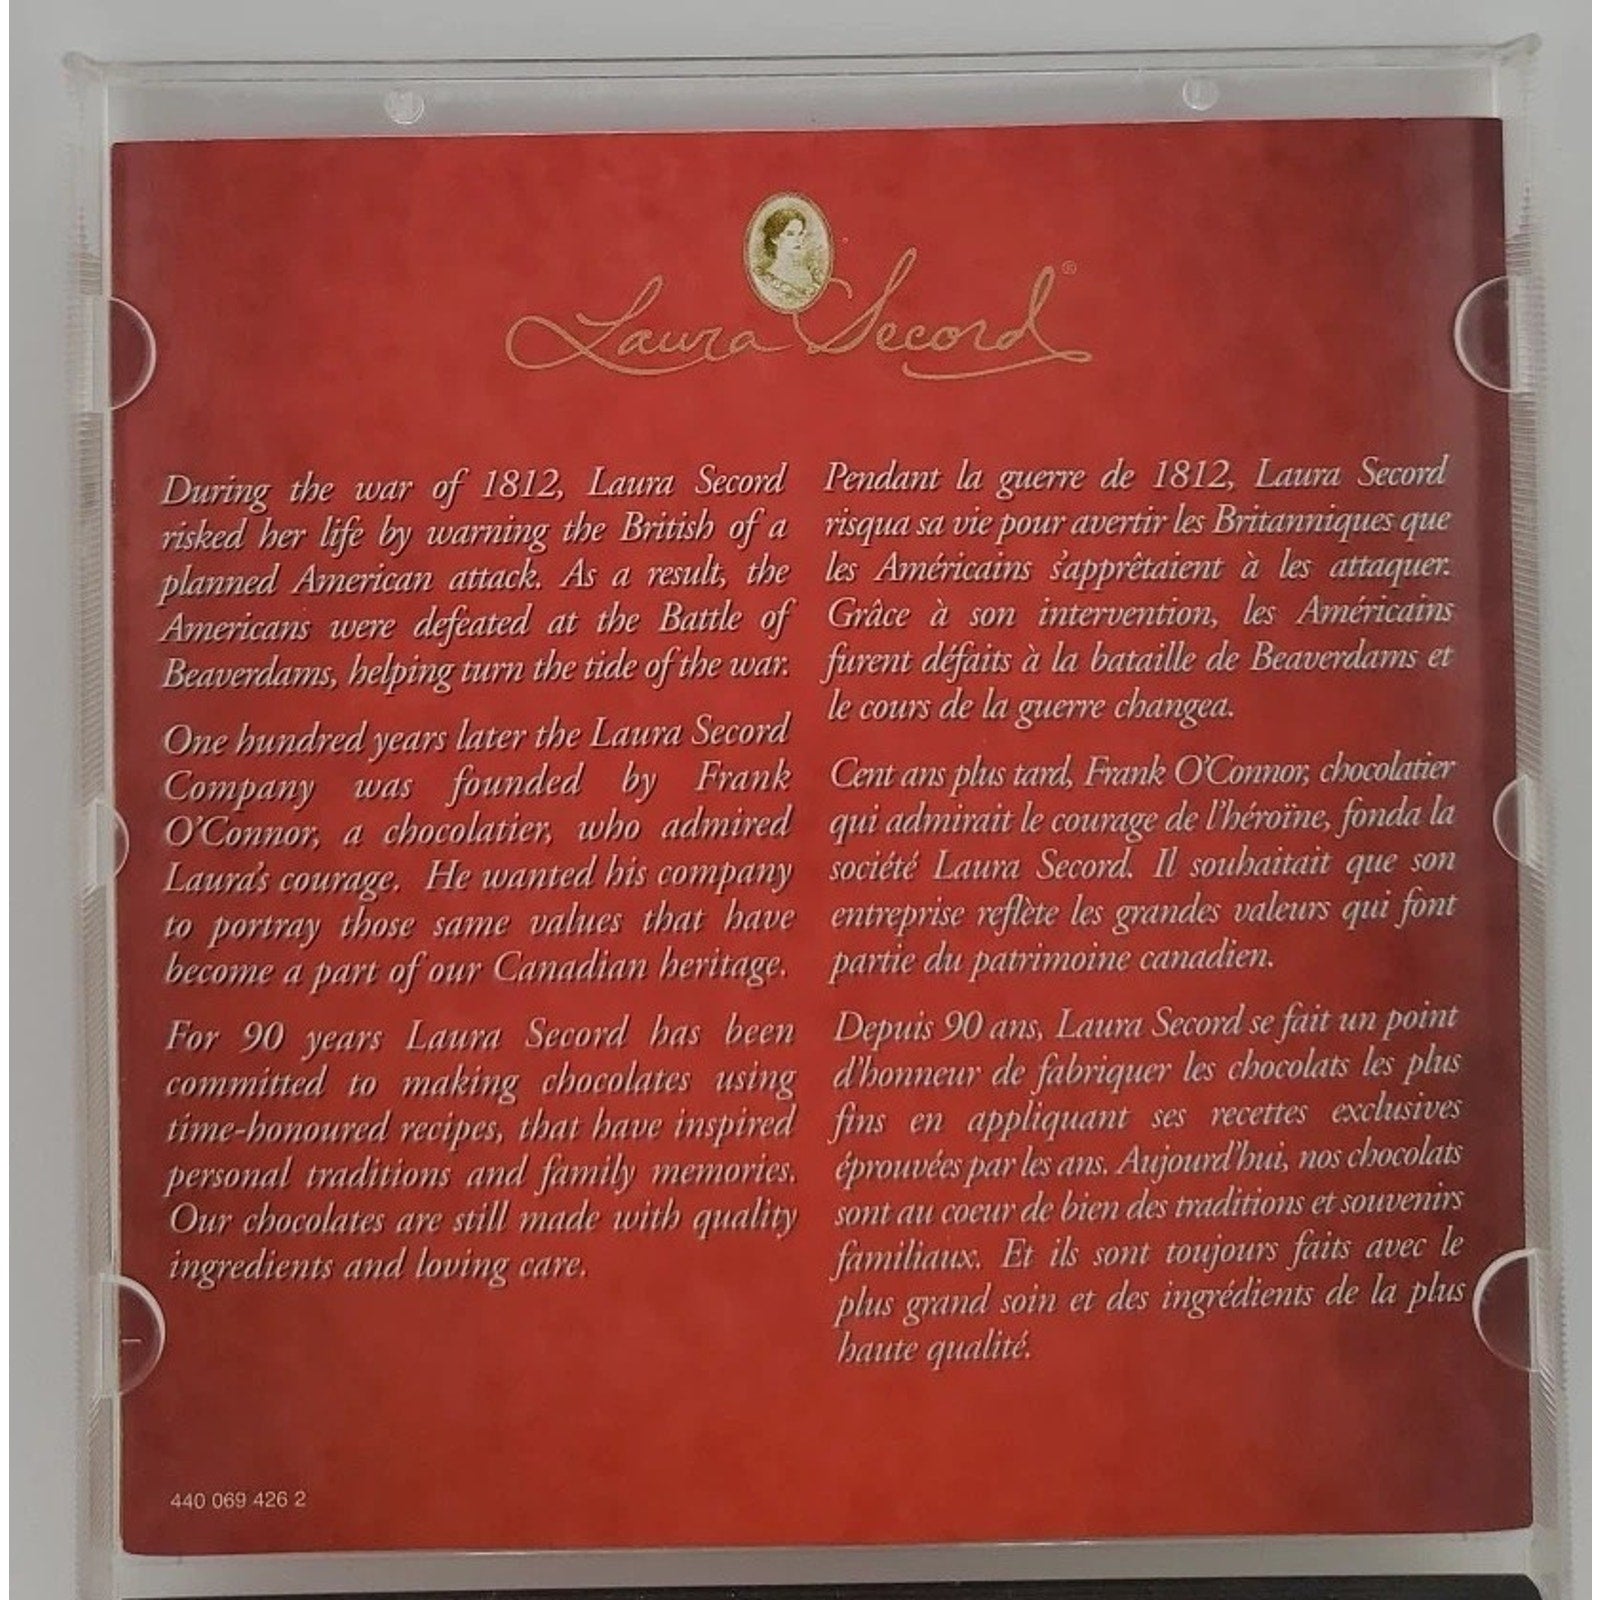 Laura Secord®
During the war of 1812, Laura Secord
risked her life by warning the British of a
planned American attack. As a result, the
Americans were defeated at the Battle of
Beaverdams, helping turn the tide of the war.
One hundred years later the Laura Secord
Company was founded by Frank
O'Connor, a chocolatier, who admired
Laura's courage. He wanted his company
to portray those same values that have
become a part of our Canadian heritage.
For 90 years Laura Secord has been
committed to making chocolates using
time-honoured recipes, that have inspired
personal traditions and family memories.
Our chocolates are still made with quality
ingredients and loving care.
Pendant la guerre de 1812, Laura Secord
risqua sa vie pour avertir les Britanniques que
les Américains s'apprêtaient à les attaquer.
Grâce à son intervention, les Américains
furent défaits à la bataille de Beaverdams et
le cours de la guerre changea.
Cent ans plus tard, Frank O'Connor, chocolatier
qui admirait le courage de l'héroïne, fonda la
société Laura Secord. Il souhaitait que son
entreprise reflète les grandes valeurs qui font
partie du patrimoine canadien.
Depuis 90 ans, Laura Secord se fait un point
d'honneur de fabriquer les chocolats les plus
fins en appliquant ses recettes exclusives
éprouvées par les ans. Aujourd'hui, nos chocolats
sont au coeur de bien des traditions et souvenirs
familiaux. Et ils sont toujours faits avec le
plus grand soin et des ingrédients de la plus
haute qualité.
440 069 426 2